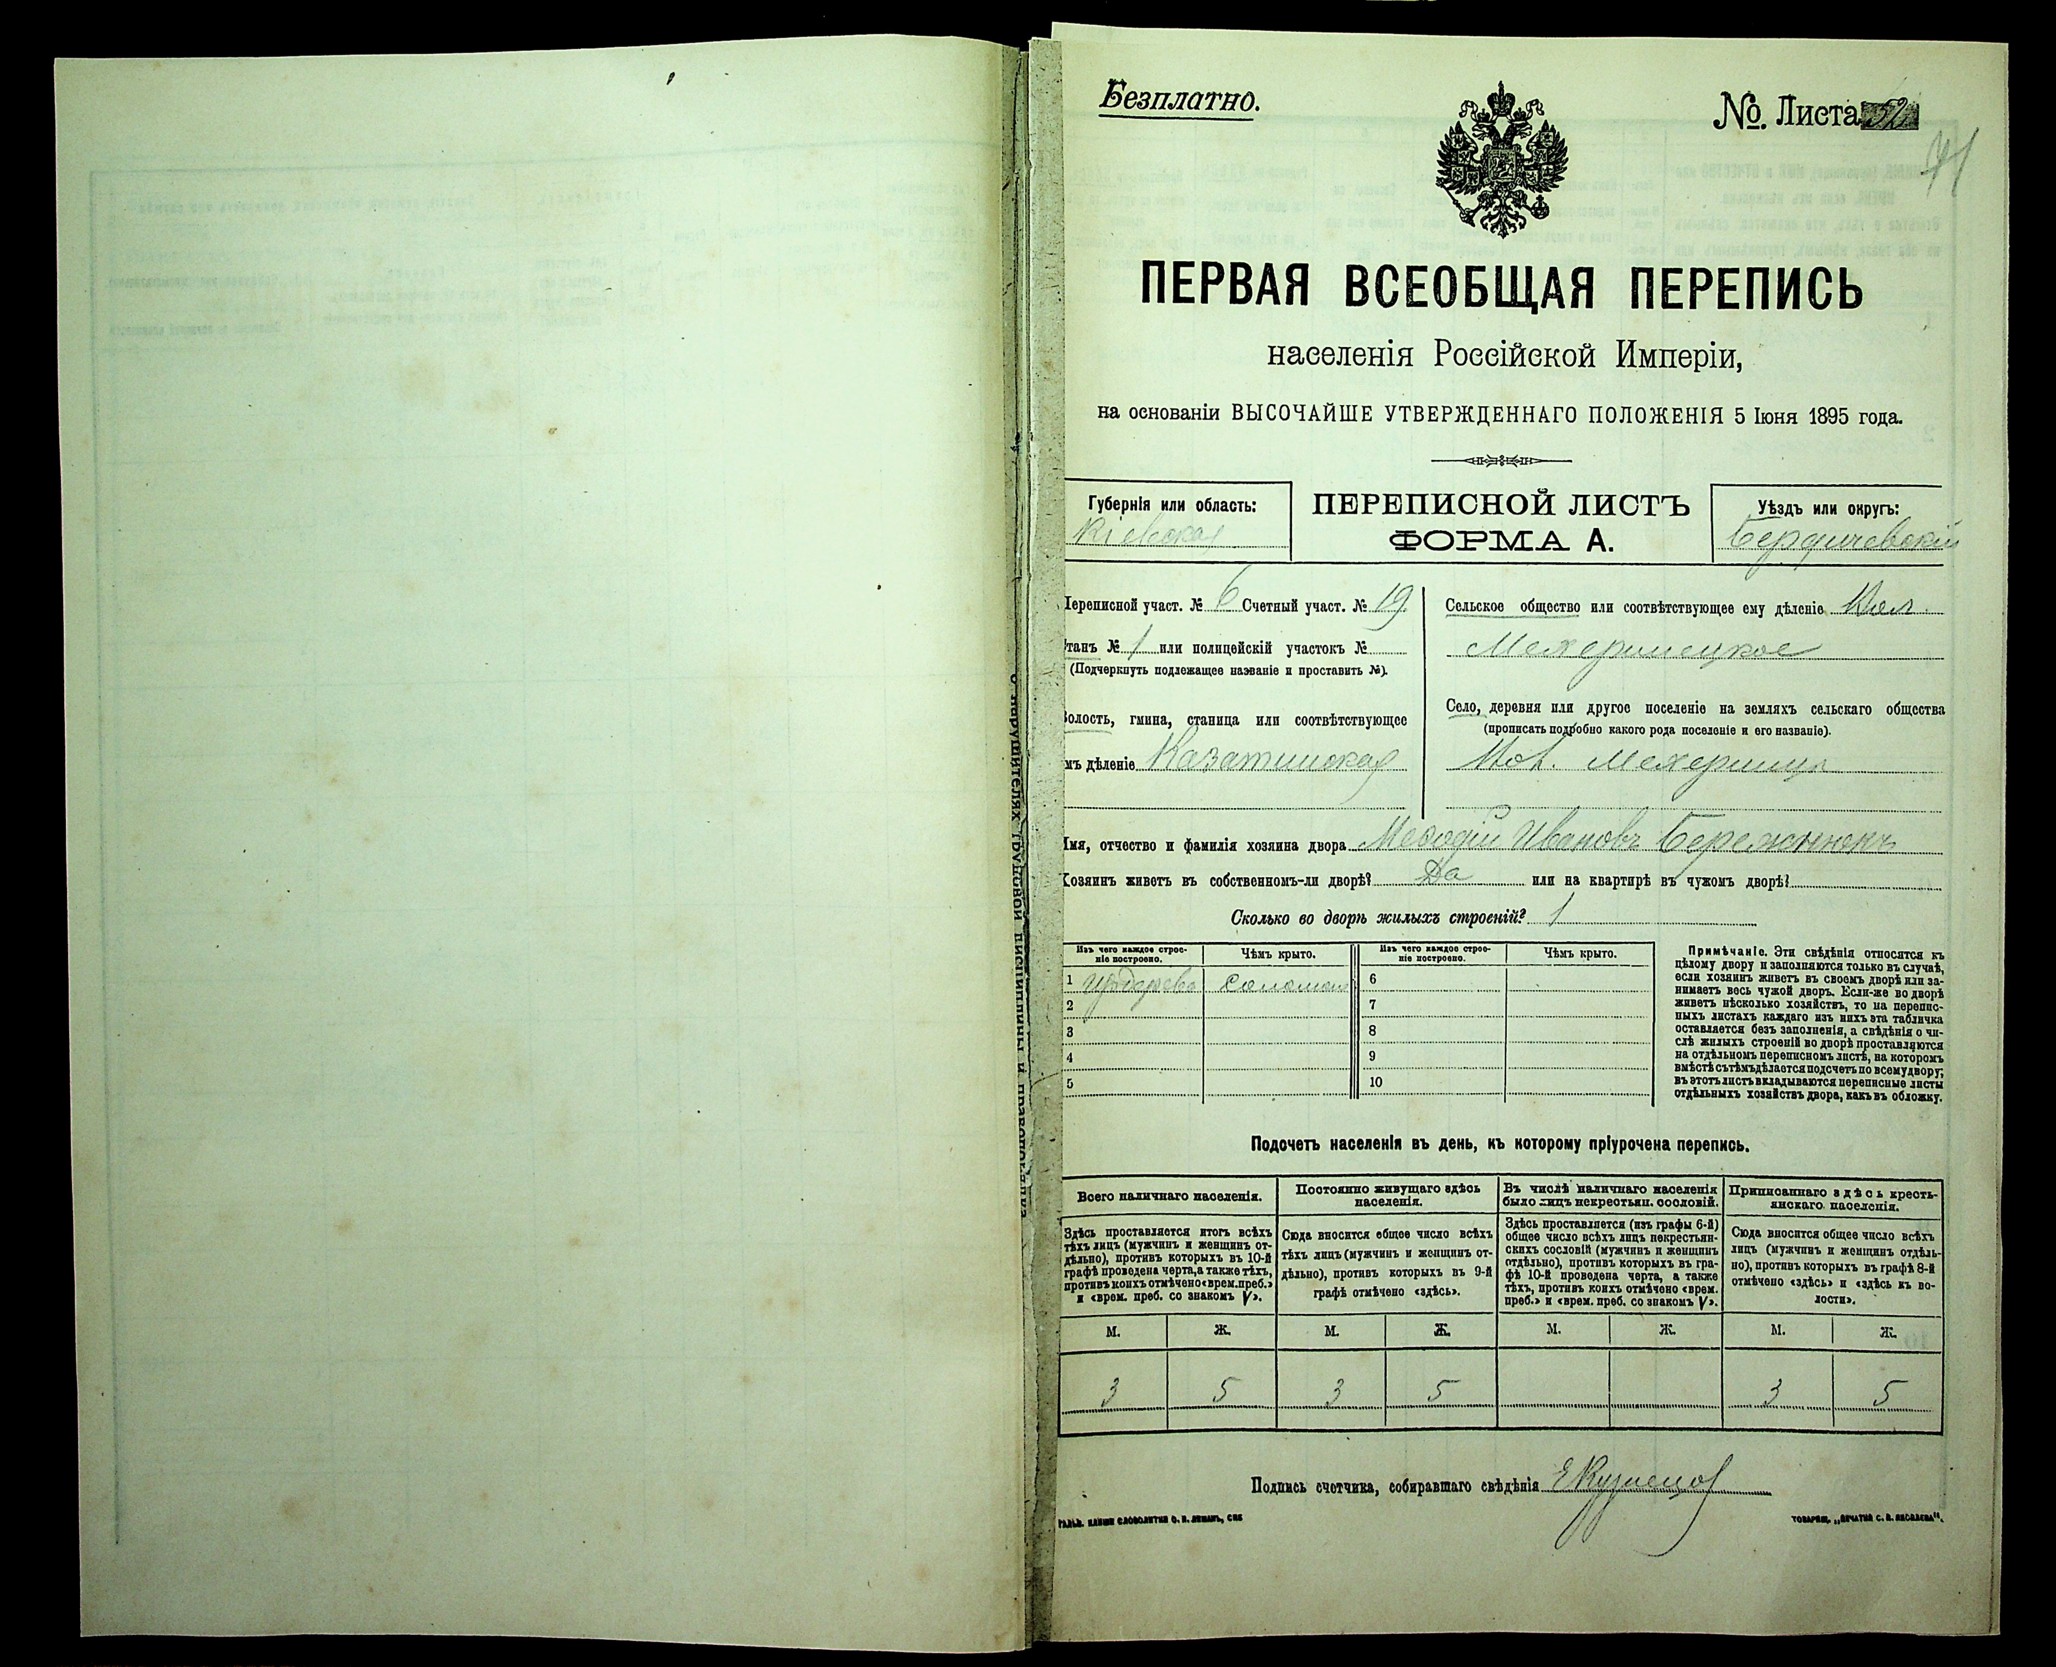 Безплатно.
№. Листа 52
71
ПЕРВАЯ ВСЕОБЩАЯ ПЕРЕПИСЬ
населенія Россійской Имперіи,
на основаніи ВЫСОЧАЙШЕ УТВЕРЖДЕННАГО ПОЛОЖЕНІЯ 5 Іюня 1895 года.
Губернія или область:
Кіевская
ПЕРЕПИСНОЙ ЛИСТЪ
ФОРМА А.
Уѣздъ или округъ:
Бердичевскій
Переписной участ. № 6 Счетный участ. № 19
Станъ № 1 или полицейскій участокъ №
(Подчеркнуть подлежащее названіе и проставить №).
Волость, гмина, станица или соотвѣтствующее
имъ дѣленіе Казатинская
Сельское общество или соотвѣтствующее ему дѣленіе
Махеринецкое
Село, деревня или другое поселеніе на земляхъ сельскаго общества
(прописать подробно какого рода поселеніе и его названіе).
Махеринцы
Имя, отчество и фамилія хозяина двора Меѳодій Ивановъ Бережнюкъ
Хозяинъ живетъ въ собственномъ-ли дворѣ? Да или на квартирѣ въ чужомъ дворѣ?
Сколько во дворѣ жилыхъ строеній? 1
Изъ чего каждое строе-
ніе построено.
Чѣмъ крыто.
Изъ чего каждое строе-
ніе построено.
Чѣмъ крыто.
1 изъ дерева соломой 6
2 7
3 8
4 9
5 10
Примѣчаніе. Эти свѣдѣнія относятся къ
цѣлому двору и заполняются только въ случаѣ,
если хозяинъ живетъ въ своемъ дворѣ или за-
нимаетъ весь чужой дворъ. Если-же во дворѣ
живетъ нѣсколько хозяйствъ, то на перепис-
ныхъ листахъ каждаго изъ нихъ эта табличка
оставляется безъ заполненія, а свѣдѣнія о чи-
слѣ жилыхъ строеній во дворѣ проставляются
на отдѣльномъ переписномъ листѣ, на которомъ
вмѣстѣ съ тѣмъ дѣлается подсчетъ по всему двору;
въ этотъ листъ вкладываются переписные листы
отдѣльныхъ хозяйствъ двора, какъ въ обложку.
Подсчетъ населенія въ день, къ которому пріурочена перепись.
Всего наличнаго населенія.
Здѣсь проставляется итогъ всѣхъ
тѣхъ лицъ (мужчинъ и женщинъ от-
дѣльно), противъ которыхъ въ 10-й
графѣ проведена черта, а также тѣхъ,
противъ коихъ отмѣчено «врем. преб.»
и «врем. преб. со знакомъ V».
Постоянно живущаго здѣсь
населенія.
Сюда вносится общее число всѣхъ
тѣхъ лицъ (мужчинъ и женщинъ от-
дѣльно), противъ которыхъ въ 9-й
графѣ отмѣчено «здѣсь».
Въ числѣ наличнаго населенія
было лицъ некрестьян. сословій.
Здѣсь проставляется (изъ графы 6-й)
общее число всѣхъ лицъ некрестьян-
скихъ сословій (мужчинъ и женщинъ
отдѣльно), противъ которыхъ въ гра-
фѣ 10-й проведена черта, а также
тѣхъ, противъ коихъ отмѣчено «врем.
преб.» и «врем. преб. со знакомъ V».
Приписаннаго здѣсь кресть-
янскаго населенія.
Сюда вносится общее число всѣхъ
лицъ (мужчинъ и женщинъ отдѣль-
но), противъ которыхъ въ графѣ 8-й
отмѣчено «здѣсь» и «здѣсь въ во-
лости».
М. Ж. М. Ж. М. Ж. М. Ж.
3 5 3 5 3 5
Подпись счетчика, собиравшаго свѣдѣнія Е Кузнецов
ГАЛЬВ. КЛИШИ СЛОВОЛИТНИ О. И. ЛЕМАНЪ, СПБ
ТОВАРИЩ. „ПЕЧАТНЯ С. П. ЯКОВЛЕВА".